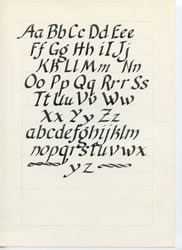 Aa Bb Cc Dd Eee
Ff Gg Hh iI Jj
Kk Ll Mm Nn
Oo Pp Qq Rrr Ss
Tt Uu Vv Ww
Xx Yy Zz
abcdefghijklm
nopqrstuvwx
yz